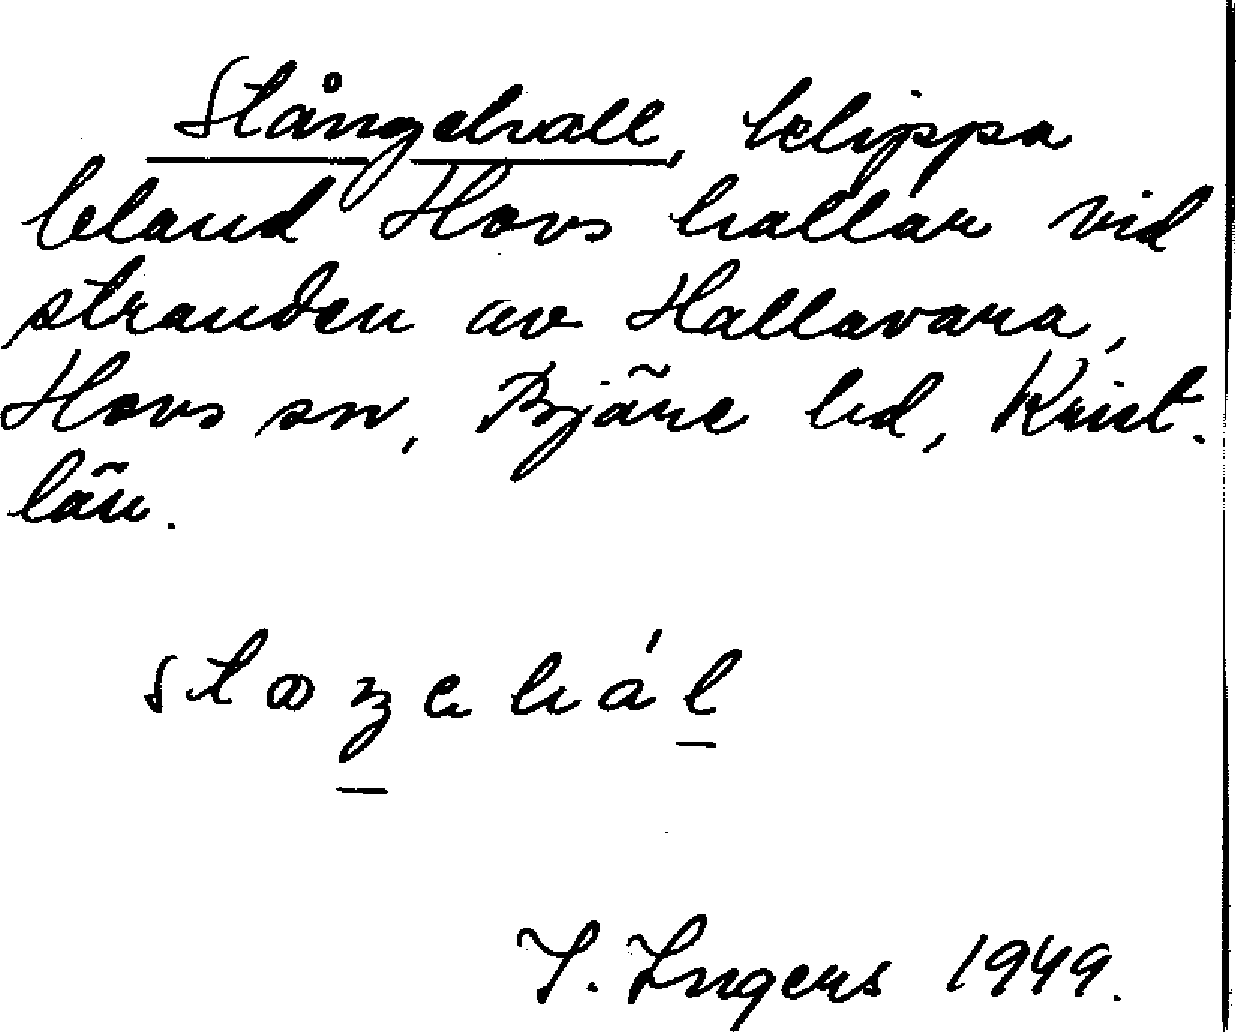 Stångehall, klippa
bland Hovs hallar vid
stranden av Hallavara,
Hovs sn, Bjäre hd, Krist.
län.
I. Ingers 1949.